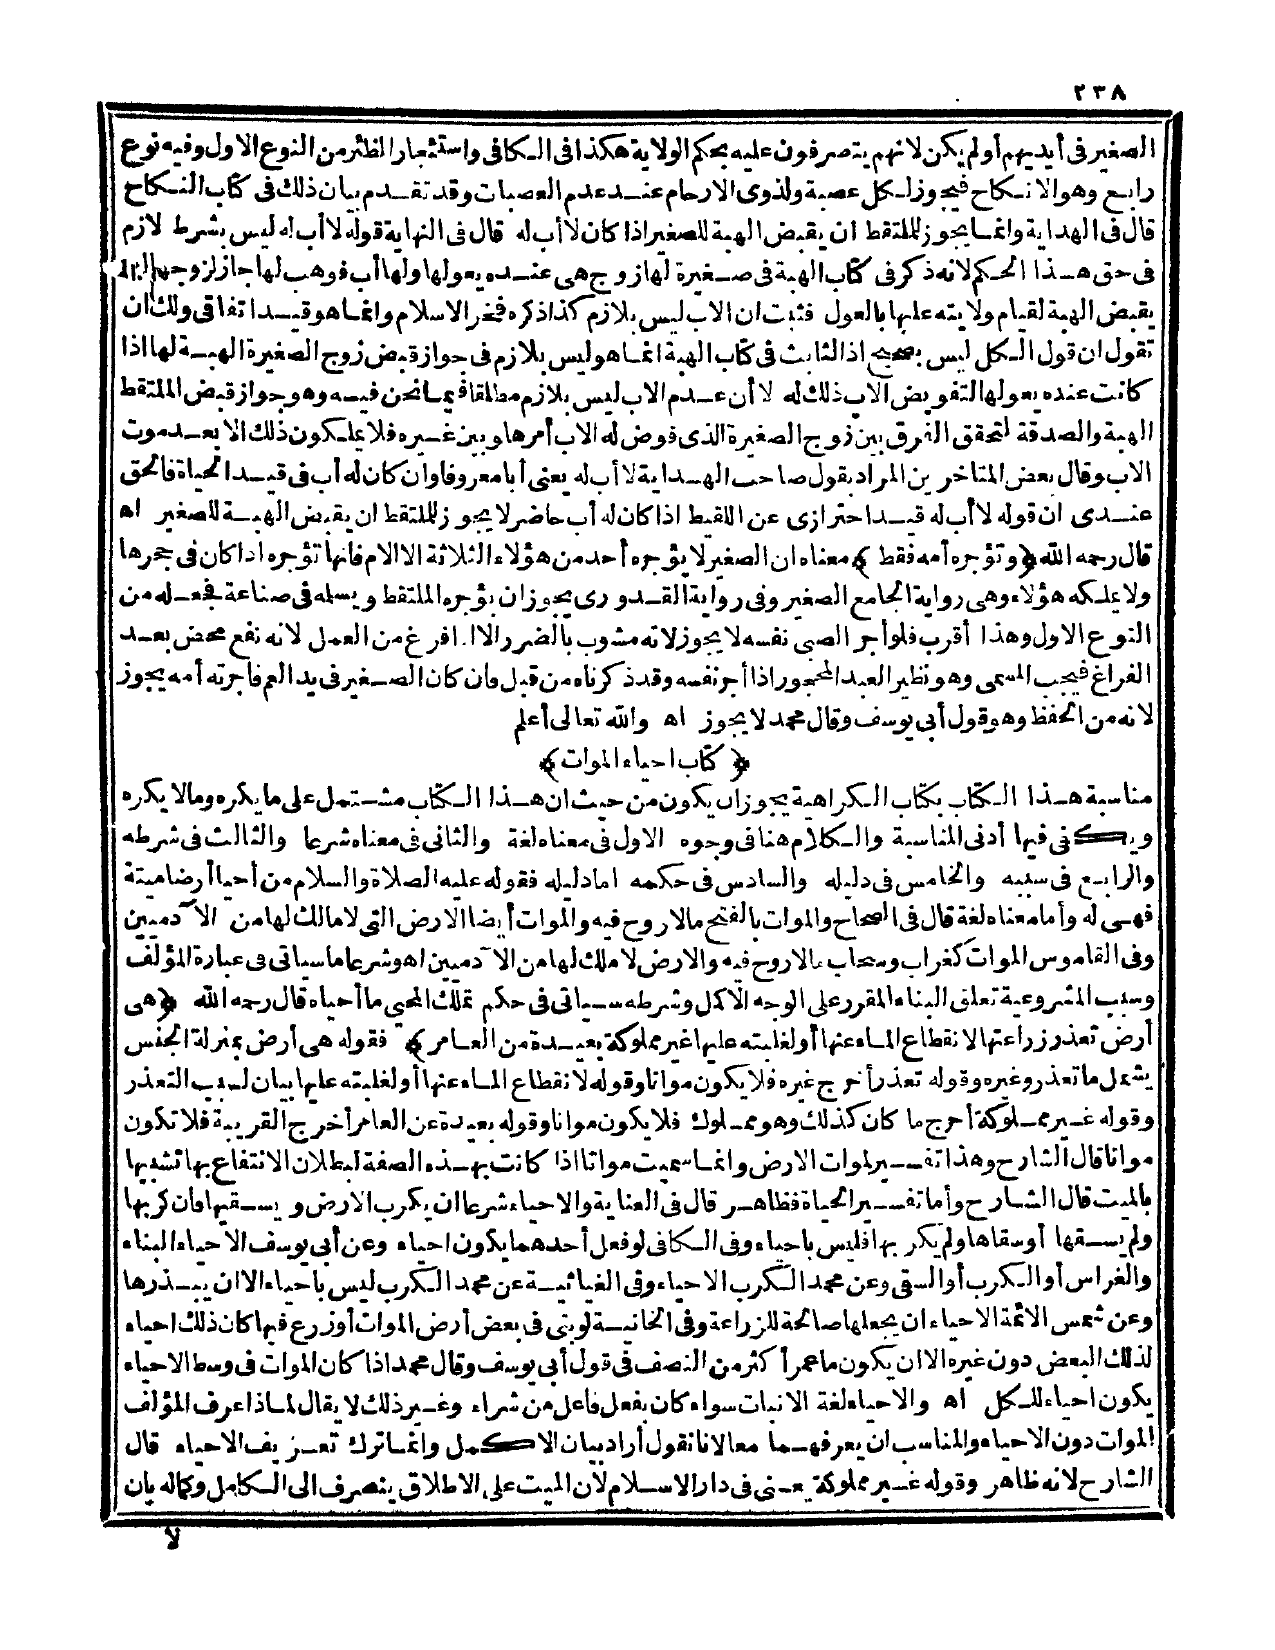 ٢٣٨
الصغير فى أيديهم أو لم يكن لانهم يتصرفون عليه بحكم الولاية هكذا فى الكافى واستئجار الظئر من النوع الاول وفيه نوع
رابع وهو الانكاح فيجوز لكل عصبة ولذوى الارحام عند عدم العصبات وقد تقدم بيان ذلك فى كتاب النكاح
قال فى الهداية وانما يجوز للملتقط ان يقبض الهبة للصغير اذا كان لا أب له قال فى النهاية قوله لا أب له ليس بشرط لازم
فى حق هذا الحكم لانه ذكر فى كتاب الهبة فى صغيرة لها زوج هى عنده يعولها ولها أب فوهب لها جاز لزوجها
يقبض الهبة لقيام ولايته عليها بالعول فثبت ان الاب ليس بلازم كذا ذكره فخر الاسلام وانما هو قيد اتفاقى ولك ان
تقول ان قول الكل ليس بصحيح اذ الثابت فى كتاب الهبة انما هو ليس بلازم فى جواز قبض زوج الصغيرة الهبة لها اذا
كانت عنده يعولها التفويض الاب ذلك له لا أن عدم الاب ليس بلازم مطلقا فيما نحن فيه وهو جواز قبض الملتقط
الهبة والصدقة لتحقق الفرق بين زوج الصغيرة الذى فوض له الاب أمرها وبين غيره فلا يملكون ذلك الا بعد موت
الاب وقال بعض المتاخرين المراد بقول صاحب الهداية لا أب له يعنى أبا معروفا وان كان له أب فى قيد الحياة فالحق
عندى ان قوله لا أب له قيد احترازى عن اللقيط اذا كان له أب حاضر لا يجوز للملتقط ان يقبض الهبة للصغير اه
قال رحمه الله ﴿وتؤجره أمه فقط﴾ معناه ان الصغير لا يؤجره أحد من هؤلاء الثلاثة الا الام فانها تؤجره اذا كان فى حجرها
ولا يملكه هؤلاء وهى رواية الجامع الصغير وفى رواية القدورى يجوز ان يؤجره الملتقط ويسلمه فى صناعة فجعله من
النوع الاول وهذا أقرب فلو أجر الصبى نفسه لا يجوز لانه مشوب بالضرر الا اذا فرغ من العمل لانه نفع محض بعد
الفراغ فيجب المسمى وهو نظير العبد المحجور اذا أجر نفسه وقد ذكرناه من قبل فان كان الصغير فى يد العم فآجرته أمه يجوز
لانه من الحفظ وهو قول أبى يوسف وقال محمد لا يجوز اه والله تعالى أعلم
﴿كتاب احياء الموات﴾
مناسبة هذا الكتاب بكتاب الكراهية يجوز ان يكون من حيث ان هذا الكتاب مشتمل على ما يكره وما لا يكره
ويكفى فيها أدنى المناسبة والكلام هنا فى وجوه الاول فى معناه لغة والثانى فى معناه شرعا والثالث فى شرطه
والرابع فى سببه والخامس فى دليله والسادس فى حكمه اما دليله فقوله عليه الصلاة والسلام من أحيا أرضا ميتة
فهى له وأما معناه لغة قال فى الصحاح والموات بالفتح ما لا روح فيه والموات أيضا الارض التى لا مالك لها من الآدميين
وفى القاموس الموات كغراب وسحاب ما لا روح فيه والارض لا ملك لها من الآدميين اه وشرعا ما سياتى فى عبارة المؤلف
وسبب المشروعية تعلق البناء المقرر على الوجه الاكمل وشرطه سياتى فى حكم تملك المحيى ما أحياه قال رحمه الله ﴿هى
أرض تعذر زراعتها لانقطاع الماء عنها أو لغلبته عليها غير مملوكة بعيدة من العامر﴾ فقوله هى أرض بمنزلة الجنس
يشمل ما تعذر وغيره وقوله تعذر أخرج غيره فلا يكون مواتا وقوله لانقطاع الماء عنها أو لغلبته عليها بيان لسبب التعذر
وقوله غير مملوكة أخرج ما كان كذلك وهو مملوك فلا يكون مواتا وقوله بعيدة عن العامر أخرج القريبة فلا تكون
مواتا قال الشارح وهذا تفسير لموات الارض وانما سميت مواتا اذا كانت بهذه الصفة لبطلان الانتفاع بها تشبيها
بالميت قال الشارح وأما تفسير الحياة فظاهر قال فى العناية والاحياء شرعا ان يكرب الارض ويسقيها فان كربها
ولم يسقها أو سقاها ولم يكربها فليس باحياء وفى الكافى لو فعل أحدهما يكون احياء وعن أبى يوسف الاحياء البناء
والغراس أو الكرب أو السقى وعن محمد الكرب الاحياء وفى الغياثية عن محمد الكرب ليس باحياء الا ان يبذرها
وعن شمس الائمة الاحياء ان يجعلها صالحة للزراعة وفى الخانية لو بنى فى بعض أرض الموات أو زرع فيها كان ذلك احياء
لذلك البعض دون غيره الا ان يكون ما عمر أكثر من النصف فى قول أبى يوسف وقال محمد اذا كان الموات فى وسط الاحياء
يكون احياء للكل اه والاحياء لغة الانبات سواء كان بفعل فاعل من شراء وغير ذلك لا يقال لماذا عرف المؤلف
الموات دون الاحياء والمناسب ان يعرفهما معا لانا نقول أراد بيان الاكمل وانما ترك تعريف الاحياء قال
الشارح لانه ظاهر وقوله غير مملوكة يعنى فى دار الاسلام لان الميت على الاطلاق ينصرف الى الكامل وكماله بان
لا